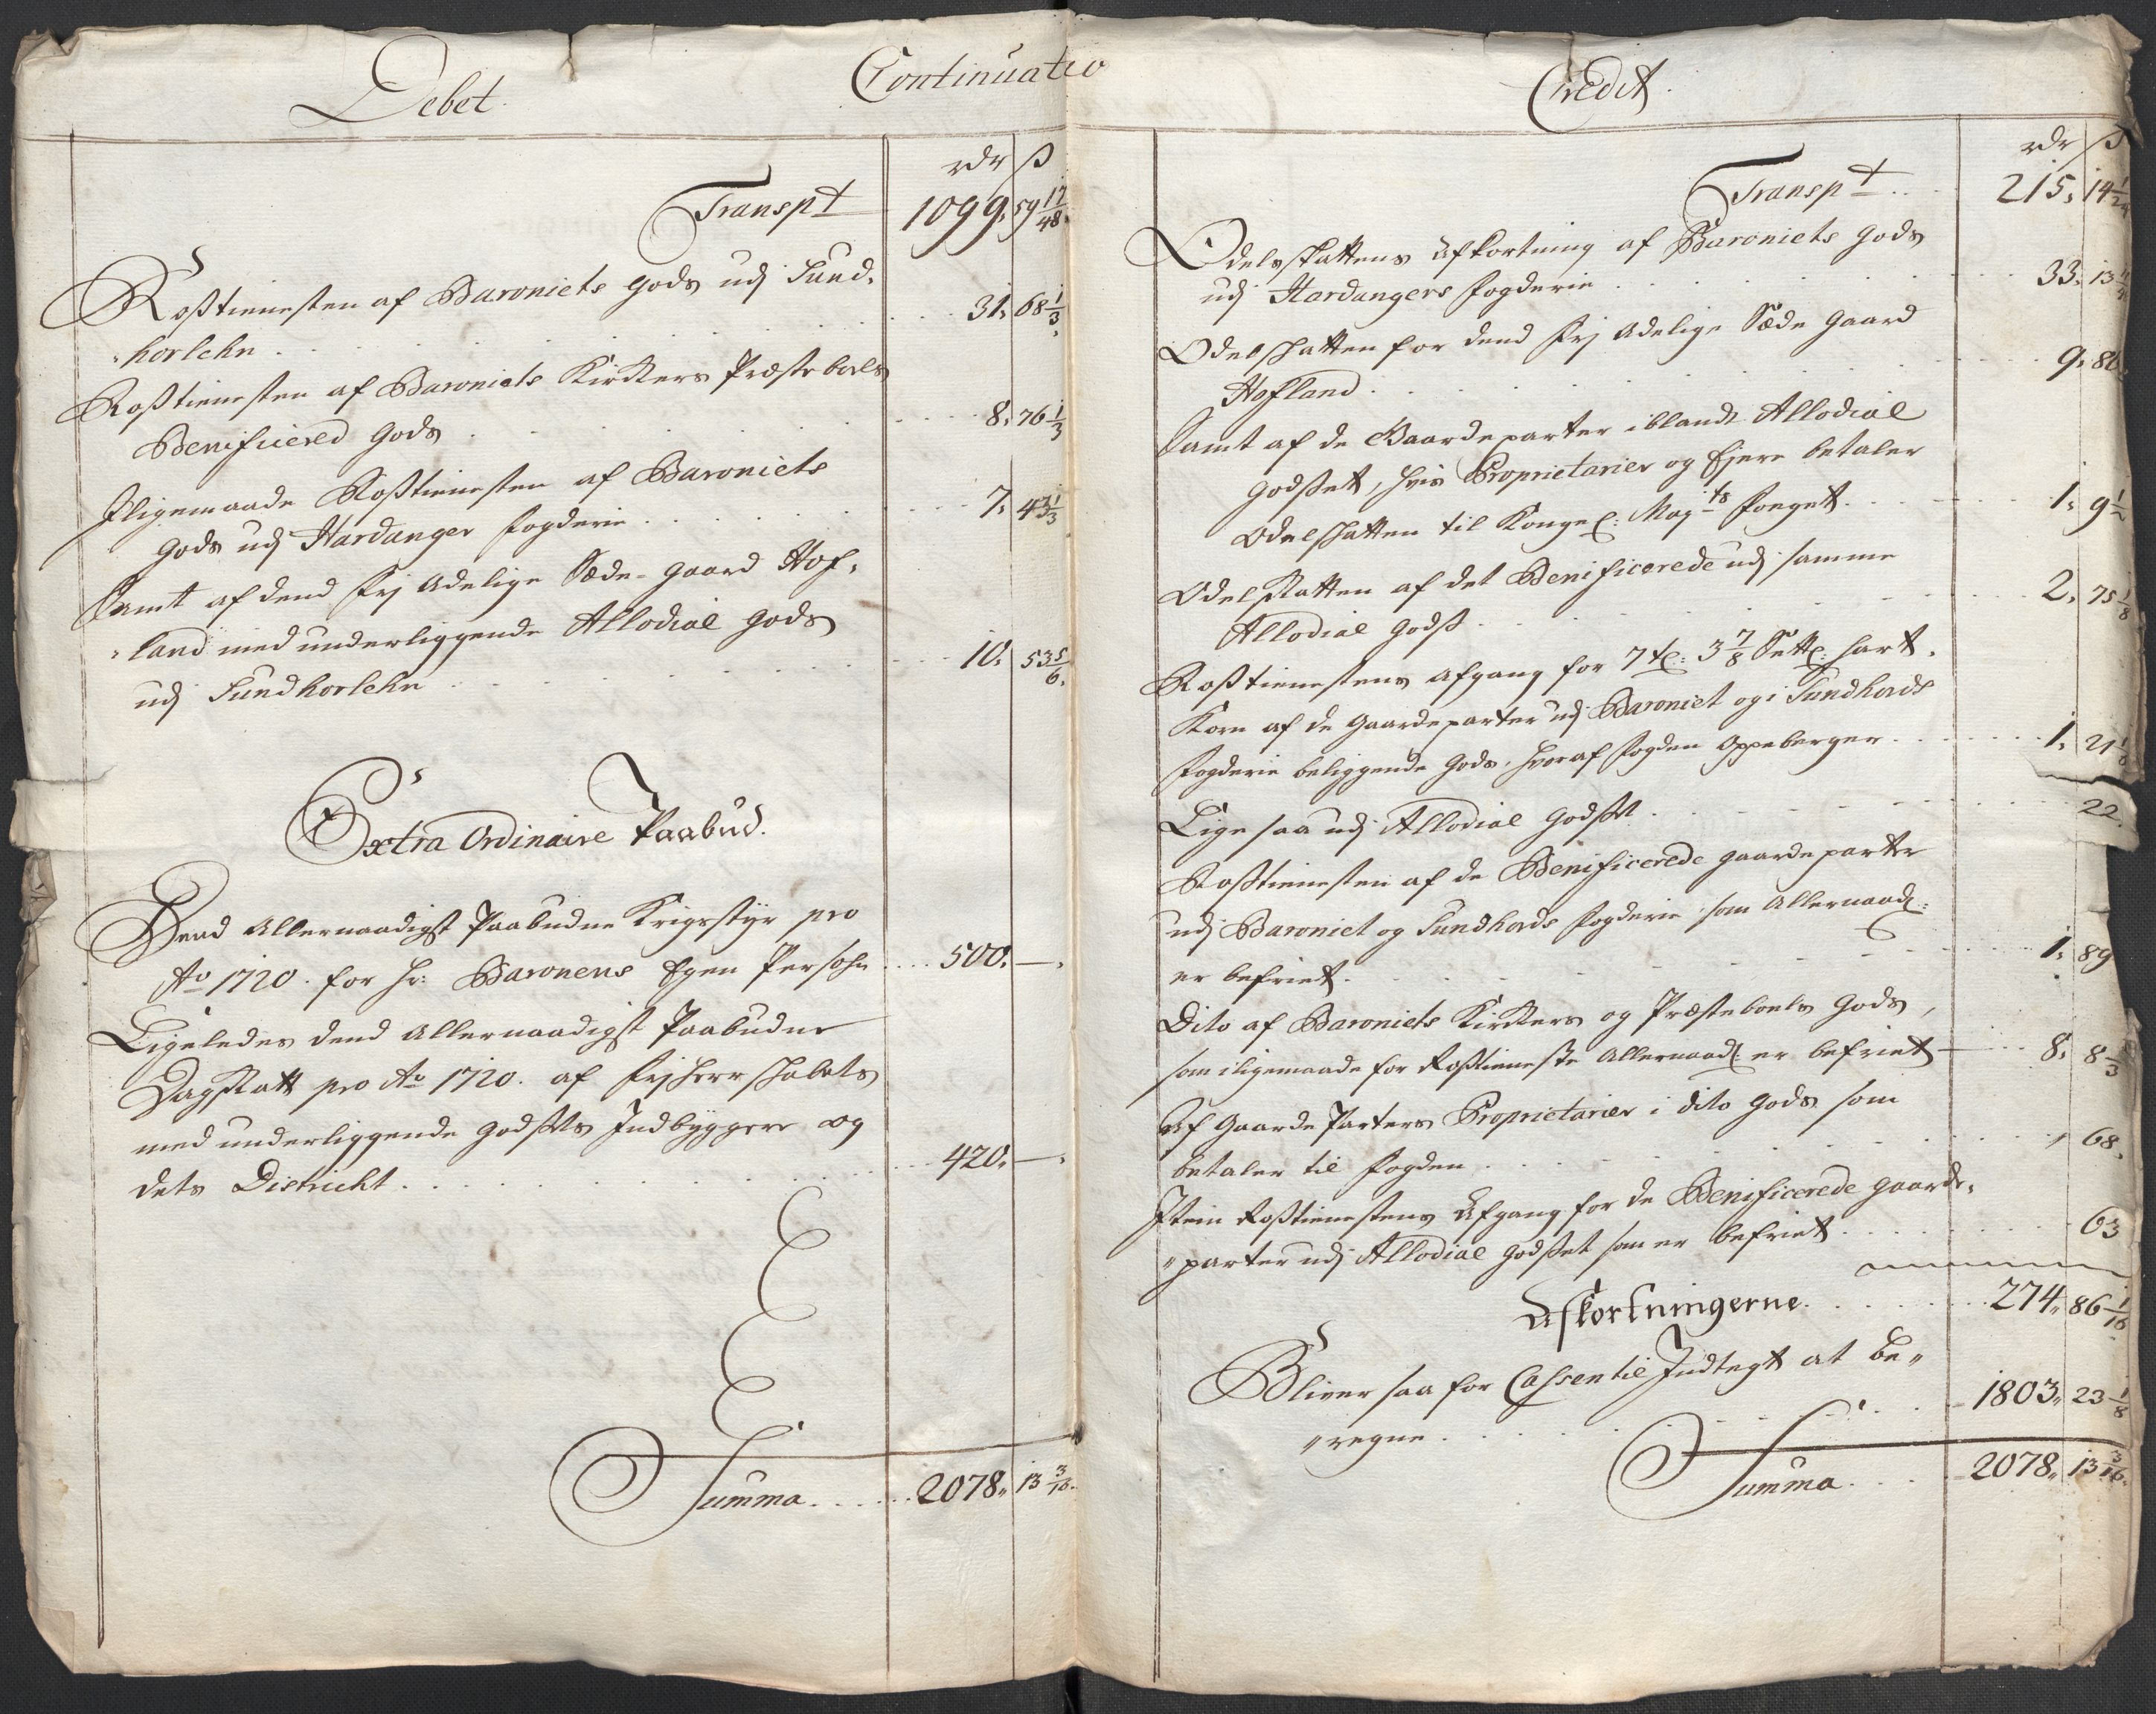 Debet
Continuatio
rdr ß
Transpt 1099. 59 17/48.
Roßtienesten af Baroniets gods udj Sund-
horlehn . . . 31. 68 1/3
Roßtienesten af Baroniets Kirkers Præstebols
Benificered gods . . . 8. 76 1/3
Iligemaade Roßtienesten af Baroniets
gods udj Hardanger fogderie . . . 7. 43 1/3
Samt af dend frj Adelige Sæde-gaard Hof-
land med underliggende Allodial gods
udj Sundhorlehn . . . 10. 53 5/6.
Extra Ordinaire Paabud.
Dend Allernaadigst Paabudne Krigsstyr pro
Ao 1720. for Hr: Baronens Egen Persohn . . . 500. —.
Ligeledes dend Allernaadigst Paabudne
Dagskatt pro Ao 1720. af frjherrskabets
med underliggende godsets Indbyggere og
dets District . . . 420. —.
Summa . . . 2078. 13 3/16.
Credit.
rdr ß
Transpt . . 215. 14 1/24
Odelsskattens Afkortning af Baroniets gods
udj Hardangers fogderie . . . 33. 13
Odelskatten for dend frj Adelige Sæde Gaard
Hofland . . . 9. 80
Samt af de Gaardeparter iblandt Allodial
godset, hvis Proprietarier og Ejere betaler
Odelskatten til Kongel: Mayts foeget . . . 1. 9 1/2
Odelskatten af det Benificerede udj samme
Allodial gods . . . 2. 75 1/8
Roßtienestens afgang for 7 tl: 3 7/8 Settl: hart-
Korn af de gaardeparter udj Baroniet og i Sundhords
fogderie beliggende gods, hvoraf fogden oppeberger . . . 1. 21 1/8
Lige saa udj Allodial godset . . . 22.
Roßtienesten af de Benificerede gaardeparter
udj Baroniet og Sundhords fogderie som Allernaadl:
er befriet . . . 1. 89
Dito af Baroniets Kirkers og Præstebols gods,
som iligemaade for Roßtieneste Allernaadl: er befriet . . . 8. 8 1/3
Af gaarde Parters Proprietarier i dito gods som
betaler til fogden . . . 68.
Item Roßtienestens Afgang for de Benificerede gaarde-
parter udj Allodial godset som er befriet . . . 63
Afkortningerne . . . 274. 86 1/16
Bliver saa for Cassen til Indtegt at be-
regne . . . 1803. 23 1/8
Summa . . . 2078. 13 3/16.